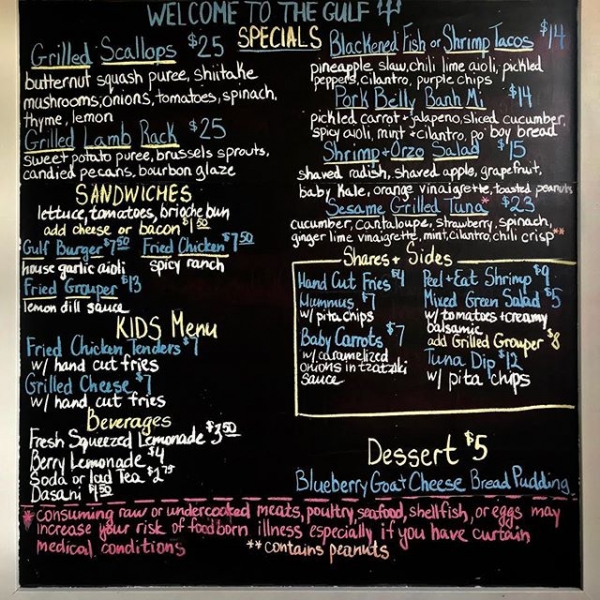 WELCOME TO THE GULF
SPECIALS
Grilled Scallops $25
butternut squash puree, shiitake
mushrooms, onions, tomatoes, spinach,
thyme, lemon
Grilled Lamb Rack $25
sweet potato puree, brussels sprouts,
candied pecans, bourbon glaze
Blackened Fish or Shrimp Tacos $14
pineapple slaw, chili lime aioli, pickled
peppers, cilantro, purple chips
Pork Belly Banh Mi $14
pickled carrot + jalapeno, sliced cucumber,
spicy aioli, mint + cilantro, po' boy bread
Shrimp + Orzo Salad $15
shaved radish, shaved apple, grapefruit,
baby kale, orange vinaigrette, toasted peanuts
Sesame Grilled Tuna* $23
cucumber, cantaloupe, strawberry, spinach,
ginger lime vinaigrette, mint, cilantro, chili crisp**
SANDWICHES
lettuce, tomatoes, brioche bun
add cheese or bacon $1.50
Gulf Burger $7.50 Fried Chicken $7.50
house garlic aioli spicy ranch
Fried Grouper $13
lemon dill sauce
KIDS Menu
Fried Chicken Tenders $7
w/ hand cut fries
Grilled Cheese $7
w/ hand cut fries
Beverages
Fresh Squeezed Lemonade $3.50
Berry Lemonade $4
Soda or Iced Tea $2.75
Dasani $1.50
Shares + Sides
Hand Cut Fries $4
Hummus $7
w/ pita chips
Baby Carrots $7
w/ caramelized
onions in tzatziki
sauce
Peel + Eat Shrimp $9
Mixed Green Salad $5
w/ tomatoes + creamy
balsamic
add Grilled Grouper $8
Tuna Dip $12
w/ pita chips
Dessert $5
Blueberry Goat Cheese Bread Pudding
* consuming raw or undercooked meats, poultry, seafood, shellfish, or eggs may
increase your risk of foodborn illness especially if you have curtain
medical conditions
** contains peanuts